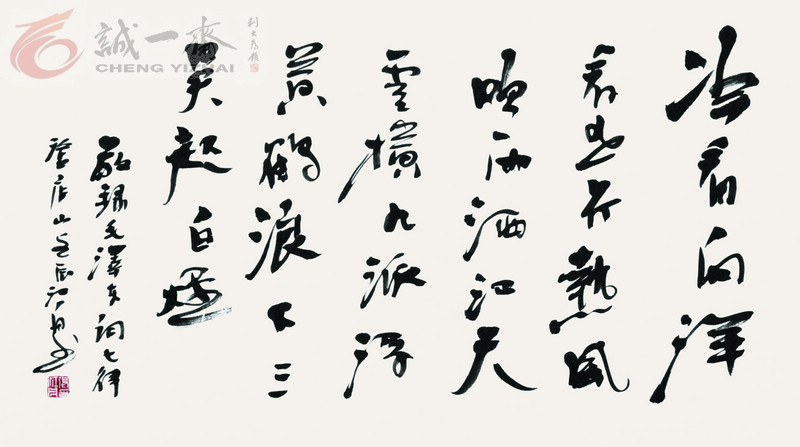 誠一齋
CHENG YIZHAI
冷看向洋
看世界熱風
吹雨洒江天
雲橫九派浮
黄鶴浪下三
吳起白煙
敬録毛澤东詞七律
登庐山